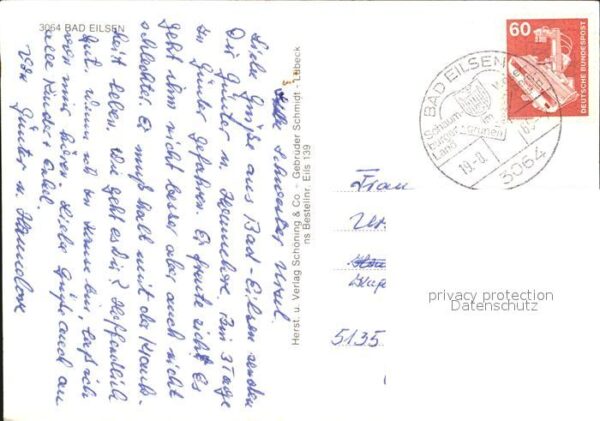 3064 BAD EILSEN
Herst. u. Verlag Schöning & Co · Gebrüder Schmidt - Lübeck
ns Bestellnr. Eils 139
Liebe Schwester Ursel.
Liebe Grüße aus Bad-Eilsen senden
Dir Günter u. Hannelore. Bin 3 Tage
zu Günter gefahren. Er freute sich! Es
geht ihm nicht besser aber auch nicht
schlechter. Er muß halt mit der Krank-
heit leben. Wie geht es Dir? Hoffentlich
gut. Wenn ich zu Hause bin, laß ich
von mir hören. Liebe Grüße auch an
alle Kinder + Enkel.
Von
Günter u. Hannelore
60
DEUTSCHE BUNDESPOST
BAD EILSEN
Schaum-
burger
Land
grünen
19.-8.
3064
Frau
5135
privacy protection
Datenschutz